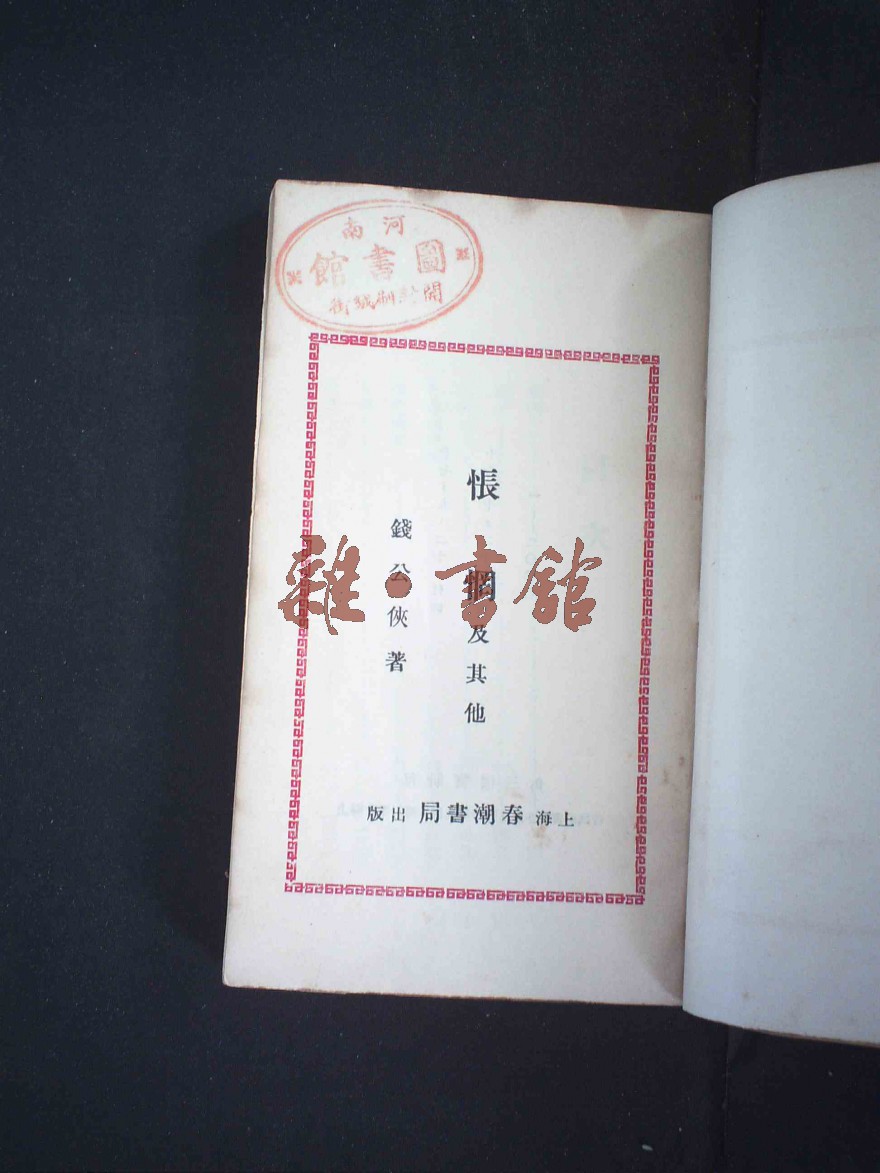 河南
圖書館
開封刷絨街
悵惘及其他
錢公俠著
雜·書館
上海春潮書局出版